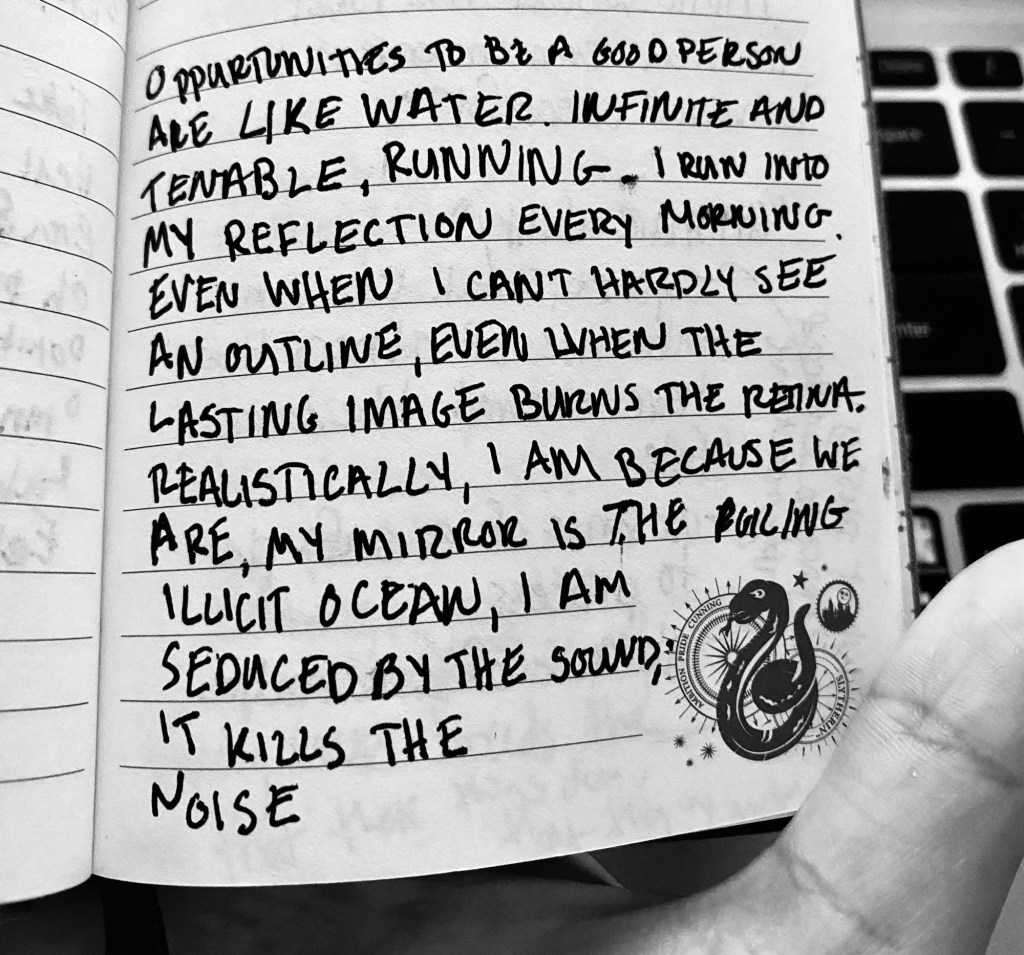 OPPURTUNITIES TO BE A GOOD PERSON
ARE LIKE WATER. INFINITE AND
TENABLE, RUNNING. I RUN INTO
MY REFLECTION EVERY MORNING.
EVEN WHEN I CAN'T HARDLY SEE
AN OUTLINE, EVEN WHEN THE
LASTING IMAGE BURNS THE RETINA.
REALISTICALLY, I AM BECAUSE WE
ARE, MY MIRROR IS THE BOILING
ILLICIT OCEAN, I AM
SEDUCED BY THE SOUND;
IT KILLS THE
NOISE
AMBITION PRIDE CUNNING
SLYTHERIN
enter